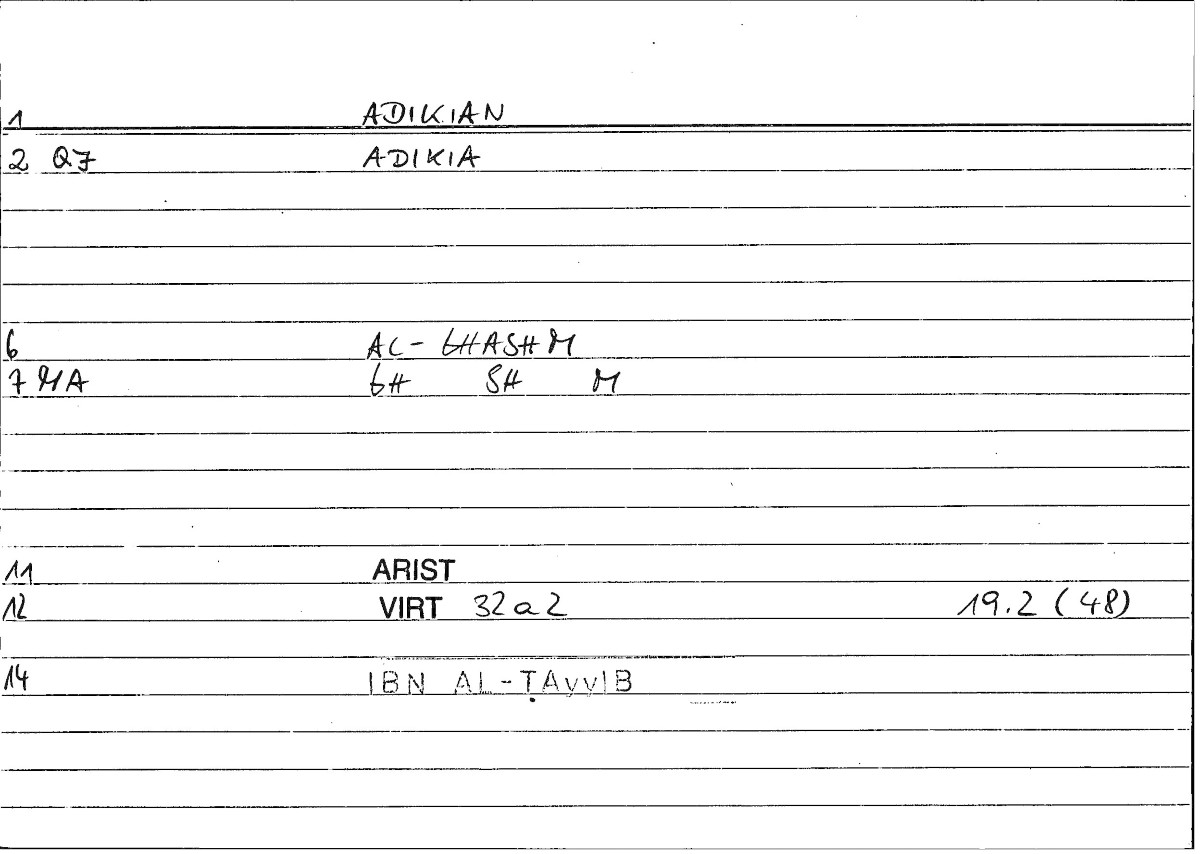 1 ADIKIAN
2 QF ADIKIA
6 AL-GHASHM
7 MA GH SH M
11 ARIST
12 VIRT 32a2 19.2 (48)
14 IBN AL-ṬAyyIB